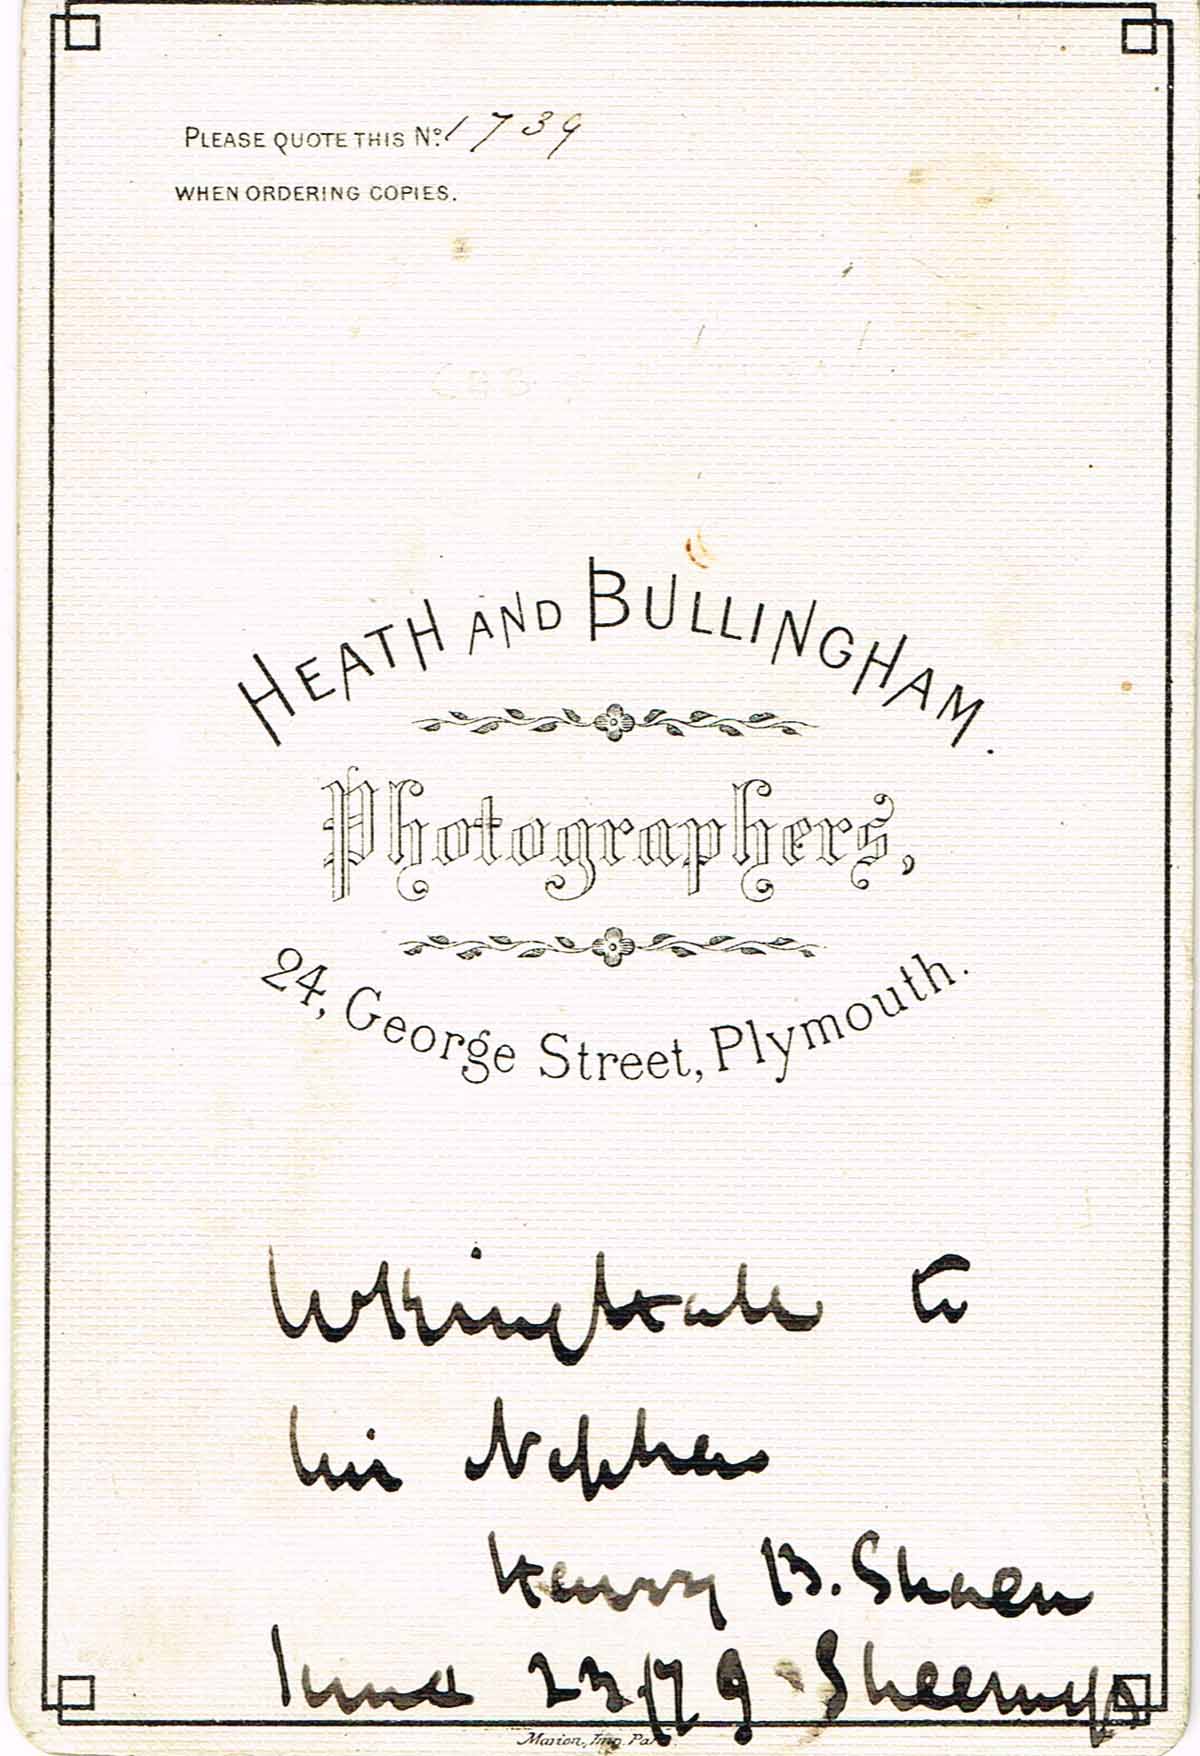 PLEASE QUOTE THIS Nº 1739
WHEN ORDERING COPIES.
HEATH AND BULLINGHAM.
Photographers,
24, George Street, Plymouth.
to
his Nephew
Henry B. Shaen
June 23/79 Sheerness
Marion, Imp. Paris.